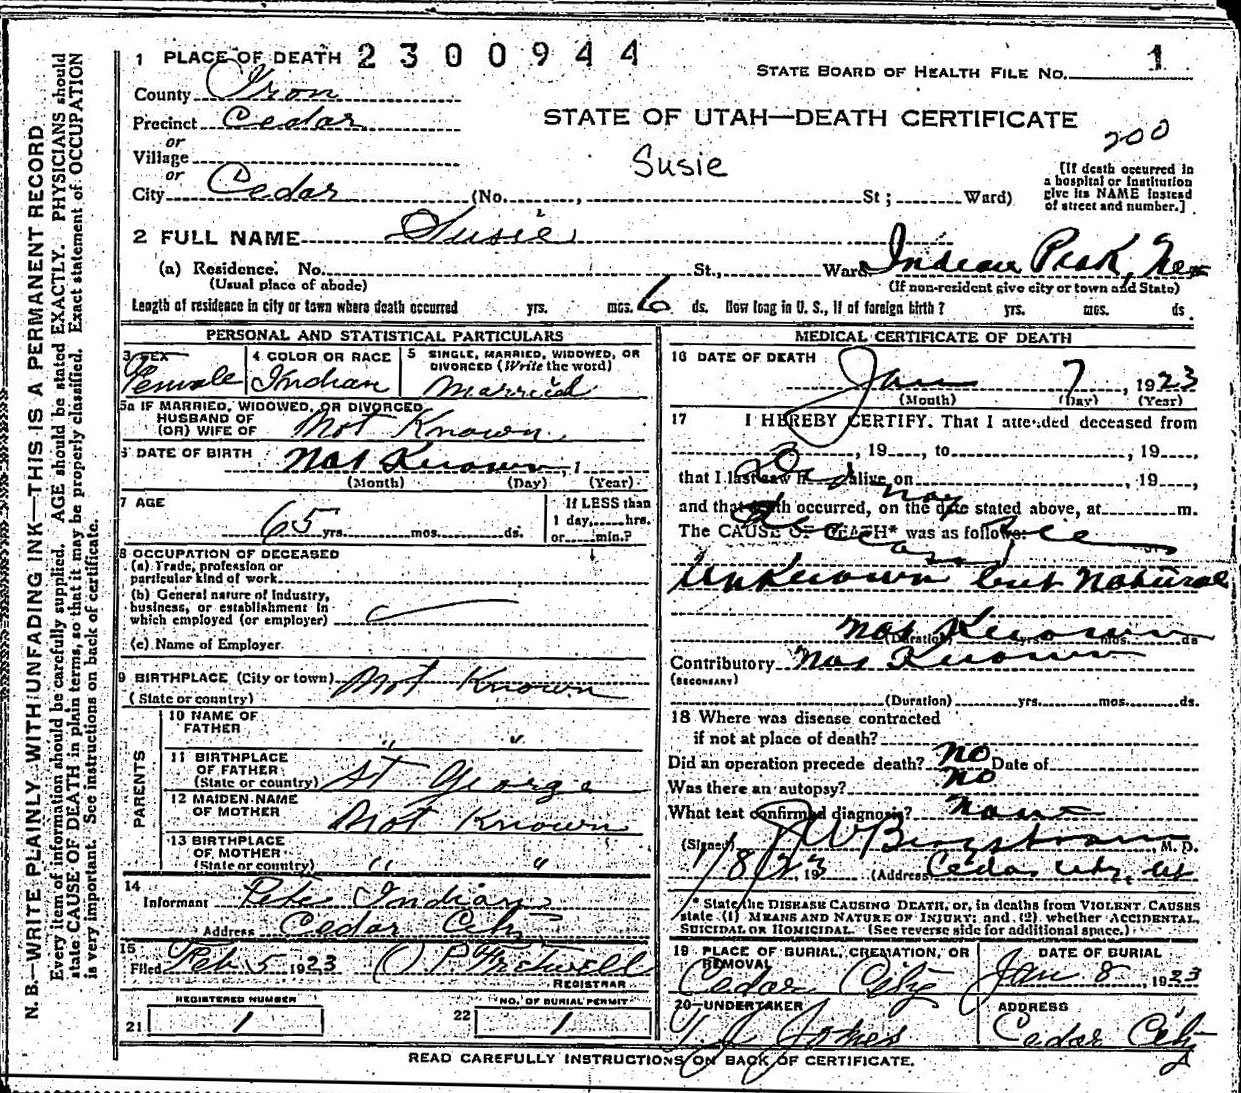 1 PLACE OF DEATH 2300944
STATE BOARD OF HEALTH FILE NO. 1
County Iron
Precinct Cedar
STATE OF UTAH—DEATH CERTIFICATE
200
or
Village
Susie
or
City Cedar (No. , St; Ward)
[If death occurred in
a hospital or institution
give its NAME instead
of street and number.]
2 FULL NAME Susie
(a) Residence. No. St., Ward. Indian Peak,
(Usual place of abode) (If non-resident give city or town and State)
Length of residence in city or town where death occurred yrs. mos. 6 ds. How long in U. S., if of foreign birth? yrs. mos. ds.
PERSONAL AND STATISTICAL PARTICULARS
3 SEX
Female
4 COLOR OR RACE
Indian
5 SINGLE, MARRIED, WIDOWED, OR
DIVORCED (Write the word)
Married
5a IF MARRIED, WIDOWED, OR DIVORCED
HUSBAND OF
(OR) WIFE OF Not Known
6 DATE OF BIRTH
Not Known, 1
(Month) (Day) (Year)
7 AGE
65 yrs. mos. ds.
If LESS than
1 day, hrs.
or min.?
8 OCCUPATION OF DECEASED
(a) Trade, profession or
particular kind of work
(b) General nature of Industry,
business, or establishment in
which employed (or employer)
(c) Name of Employer
9 BIRTHPLACE (City or town) Not Known
(State or country)
PARENTS
10 NAME OF
FATHER " "
11 BIRTHPLACE
OF FATHER
(State or country) St George
12 MAIDEN NAME
OF MOTHER Not Known
13 BIRTHPLACE
OF MOTHER
(State or country) " "
14
Informant Pete Indian
Address Cedar City
15
Filed Feb 5 1923 O P Fretwell
REGISTRAR
21 REGISTERED NUMBER
1
22 NO. OF BURIAL PERMIT
1
MEDICAL CERTIFICATE OF DEATH
16 DATE OF DEATH
Jan 7, 1923
(Month) (Day) (Year)
17 I HEREBY CERTIFY. That I attended deceased from
, 19 , to , 19 ,
that I last saw h alive on , 19 ,
and that death occurred, on the date stated above, at m.
The CAUSE OF DEATH* was as follows:
Unknown but natural
(Duration) yrs. mos. ds
Not Known
Contributory Not Known
(SECONDARY)
(Duration) yrs. mos. ds.
18 Where was disease contracted
if not at place of death?
Did an operation precede death? no Date of
Was there an autopsy? no
What test confirmed diagnosis? none
(Signed) Bergstrom, M. D.
1/8/23 19 (Address) Cedar City, Ut
* State the DISEASE CAUSING DEATH, or, in deaths from VIOLENT CAUSES
state (1) MEANS AND NATURE OF INJURY; and (2) whether ACCIDENTAL,
SUICIDAL OR HOMICIDAL. (See reverse side for additional space.)
19 PLACE OF BURIAL, CREMATION, OR
REMOVAL
Cedar City
DATE OF BURIAL
Jan 8, 1923
20 UNDERTAKER
Jones
ADDRESS
Cedar City
READ CAREFULLY INSTRUCTIONS ON BACK OF CERTIFICATE.
N. B.—WRITE PLAINLY, WITH UNFADING INK—THIS IS A PERMANENT RECORD
Every item of information should be carefully supplied. AGE should be stated EXACTLY. PHYSICIANS should
state CAUSE OF DEATH in plain terms, so that it may be properly classified. Exact statement of OCCUPATION
is very important. See instructions on back of certificate.